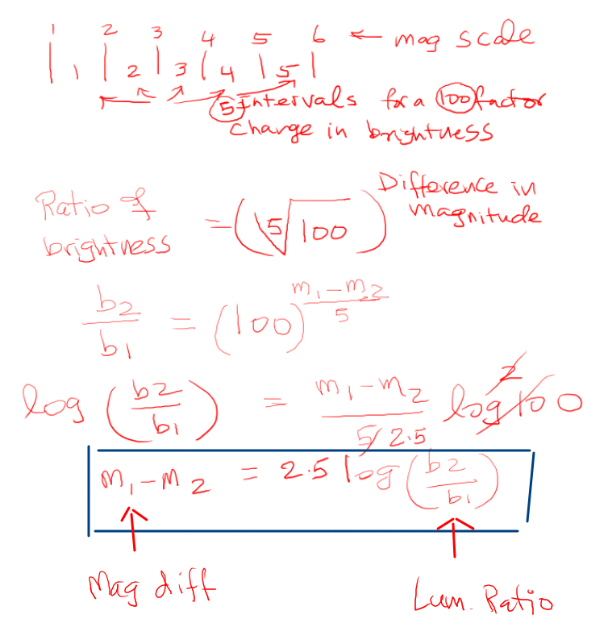 1 2 3 4 5 6 ← mag scale
1 2 3 4 5
5 intervals for a 100 factor
change in brightness
Ratio of brightness = (⁵√100) Difference in magnitude
b2/b1 = (100)^(m1-m2)/5
log (b2/b1) = m1-m2 / 5 2.5 log 100 2
m1-m2 = 2.5 log (b2/b1)
Mag diff
Lum. Ratio